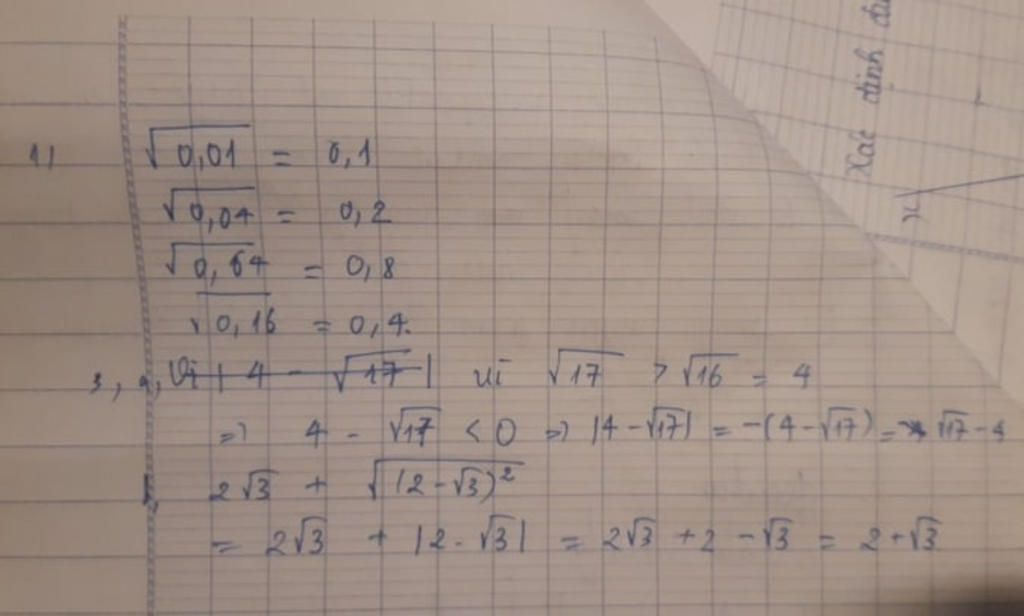 1) √0,01 = 0,1
√0,04 = 0,2
√0,64 = 0,8
√0,16 = 0,4.
3, a, Vì |4 - √17| vì √17 > √16 = 4
=> 4 - √17 < 0 => |4 - √17| = -(4 - √17) = √17 - 4
b, 2√3 + √(2-√3)²
= 2√3 + |2 - √3| = 2√3 + 2 - √3 = 2 + √3
Xác định
x